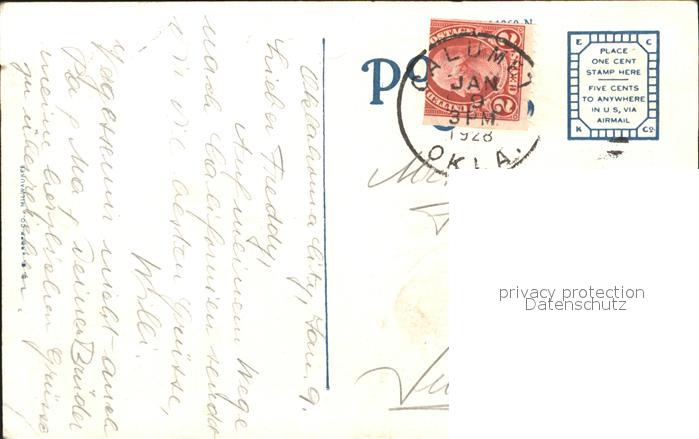 Oklahoma City, Jan. 9.
Lieber Freddy,
Auf meinem Wege
nach Californien sendet
die besten Grüsse,
Willi.
Vergesst mir nicht auch
Pa, Ma, & Deinen Bruder
meine herzlichen Grüsse
zu überreichen.
PO
POSTAGE
2
2
CALUMET
JAN
9
3 PM
1928
OKLA.
E C
PLACE
ONE CENT
STAMP HERE
FIVE CENTS
TO ANYWHERE
IN U.S. VIA
AIRMAIL
K CO.
Mr.
privacy protection
Datenschutz